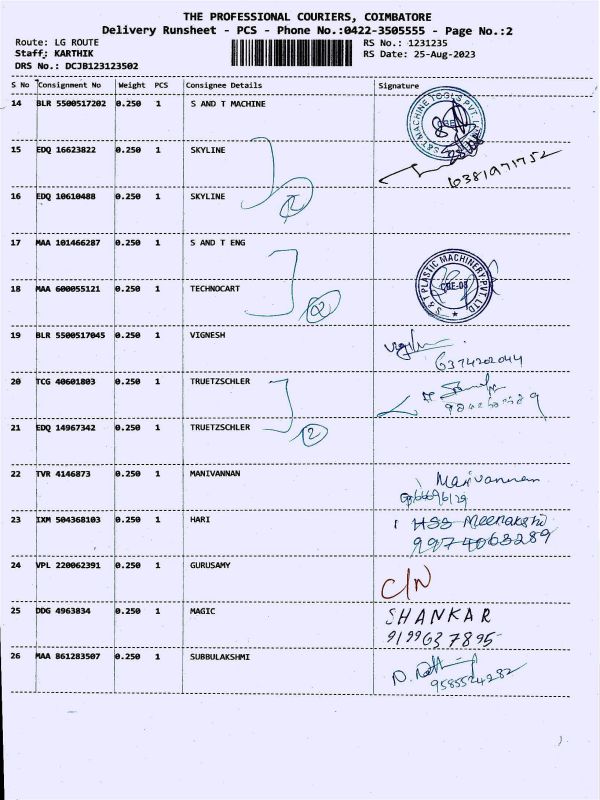 THE PROFESSIONAL COURIERS, COIMBATORE
Delivery Runsheet - PCS - Phone No.:0422-3505555 - Page No.:2
Route: LG ROUTE RS No.: 1231235
Staff: KARTHIK RS Date: 25-Aug-2023
DRS No.: DCJB123123502
S No Consignment No Weight PCS Consignee Details Signature
14 BLR 5500517202 0.250 1 S AND T MACHINE
S&T MACHINE TOOLS PVT. LTD
15 EDQ 16623822 0.250 1 SKYLINE
6381971752
16 EDQ 10610488 0.250 1 SKYLINE
2
17 MAA 101466287 0.250 1 S AND T ENG
S & T PLASTIC MACHINERY PVT LTD
18 MAA 600055121 0.250 1 TECHNOCART
2
19 BLR 5500517045 0.250 1 VIGNESH
6374202044
20 TCG 40601803 0.250 1 TRUETZSCHLER
21 EDQ 14967342 0.250 1 TRUETZSCHLER
2
22 TVR 4146873 0.250 1 MANIVANNAN Manivannan
23 IXM 504368103 0.250 1 HARI HSS Meenakshi
9974063289
24 VPL 220062391 0.250 1 GURUSAMY C/N
25 DDG 4963834 0.250 1 MAGIC SHANKAR
9199637895
26 MAA 861283507 0.250 1 SUBBULAKSHMI
9585524282